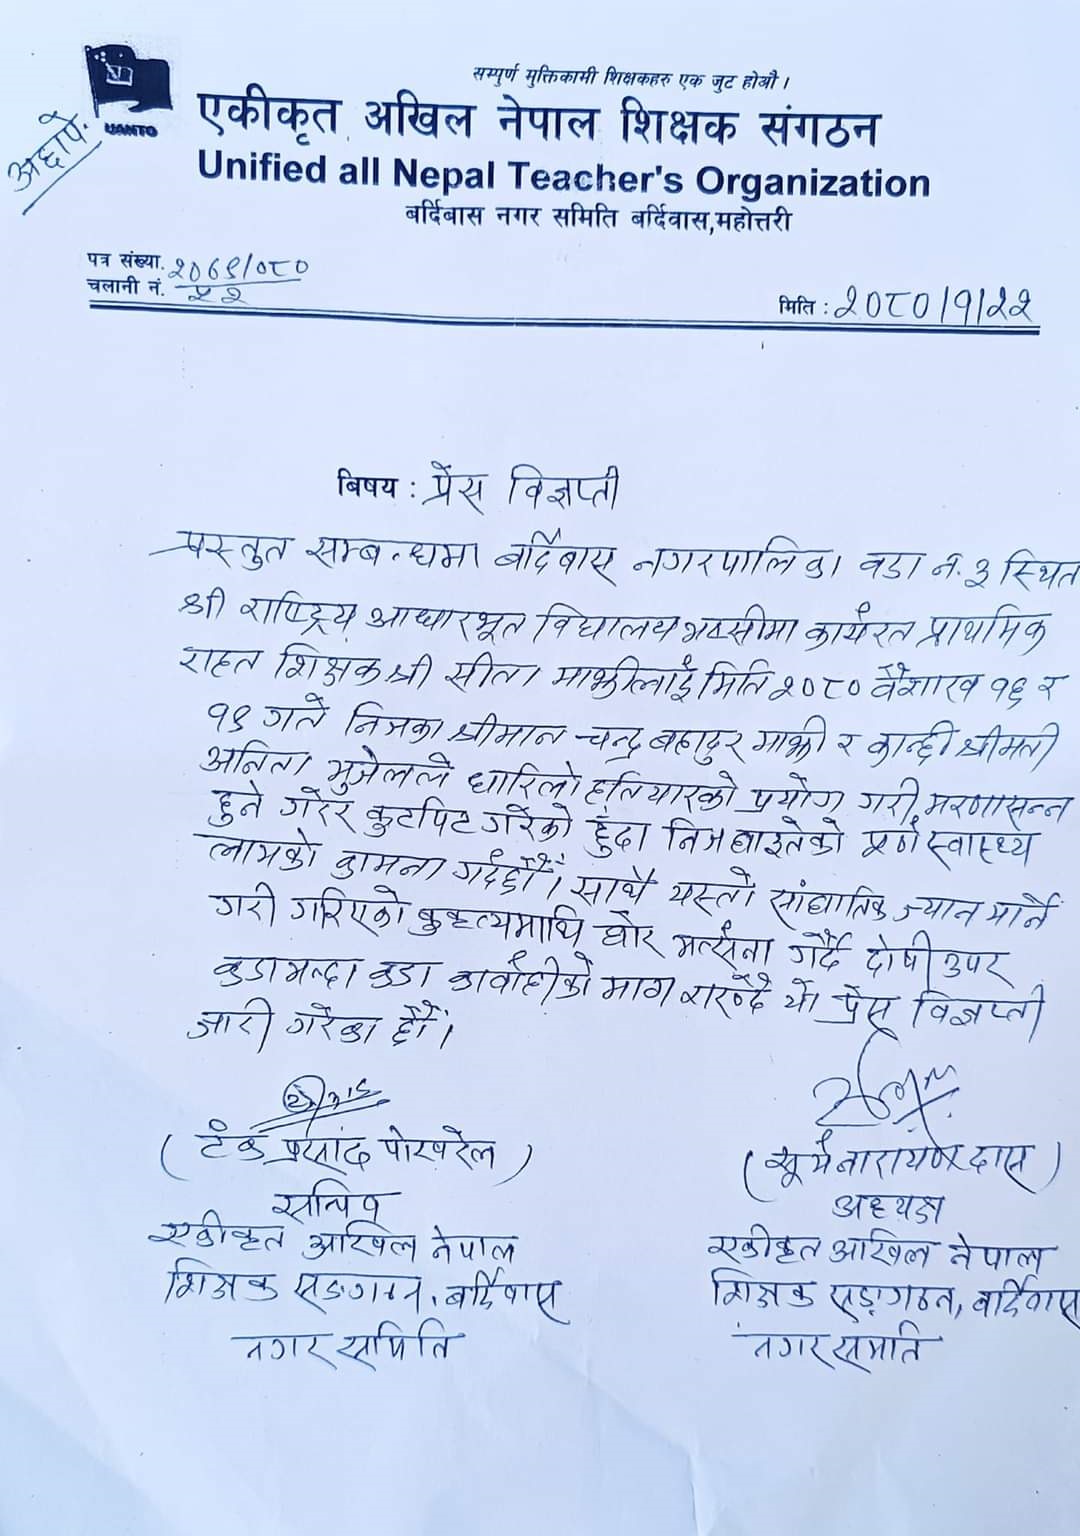 सम्पुर्ण मुक्तिकामी शिक्षकहरु एक जुट होऔ ।
एकीकृत अखिल नेपाल शिक्षक संगठन
UANTO
Unified all Nepal Teacher's Organization
बर्दिबास नगर समिति बर्दिवास,महोत्तरी
पत्र संख्या. २०७९/०८०
चलानी नं. ५२
मिति : २०८०/१/२२
बिषय : प्रेस विज्ञप्ती
प्रस्तुत सम्बन्धमा बर्दिबास नगरपालिका वडा नं. ३ स्थित
श्री राष्ट्रिय आधारभूत विद्यालय कार्यरत प्राथमिक
राहत शिक्षक श्री सीता माझीलाई मिति २०८० वैशाख १६ र
१९ गते निजका श्रीमान चन्द्र बहादुर माझी र कान्छी श्रीमती
अनिता भुजेलले धारिलो हतियारको प्रयोग गरी मरणासन्न
हुने गरेर कुटपिट गरेको हुँदा निज घाइतेको पूर्ण स्वास्थ्य
लाभको कामना गर्दछौं । साथै यस्तो सांघातिक ज्यान मार्ने
गरी गरिएको कुकृत्यमाथि घोर भर्त्सना गर्दै दोषी उपर
कडा भन्दा कडा कार्वाहीको माग राख्दै यो प्रेस विज्ञप्ती
जारी गरेका छौं ।
( टंक प्रसाद पोखरेल )
सचिव
एकीकृत अखिल नेपाल
शिक्षक सङ्गठन, बर्दिबास
नगर समिति
( सूर्यनारायण दास )
अध्यक्ष
एकीकृत अखिल नेपाल
शिक्षक सङ्गठन, बर्दिबास
नगर समिति